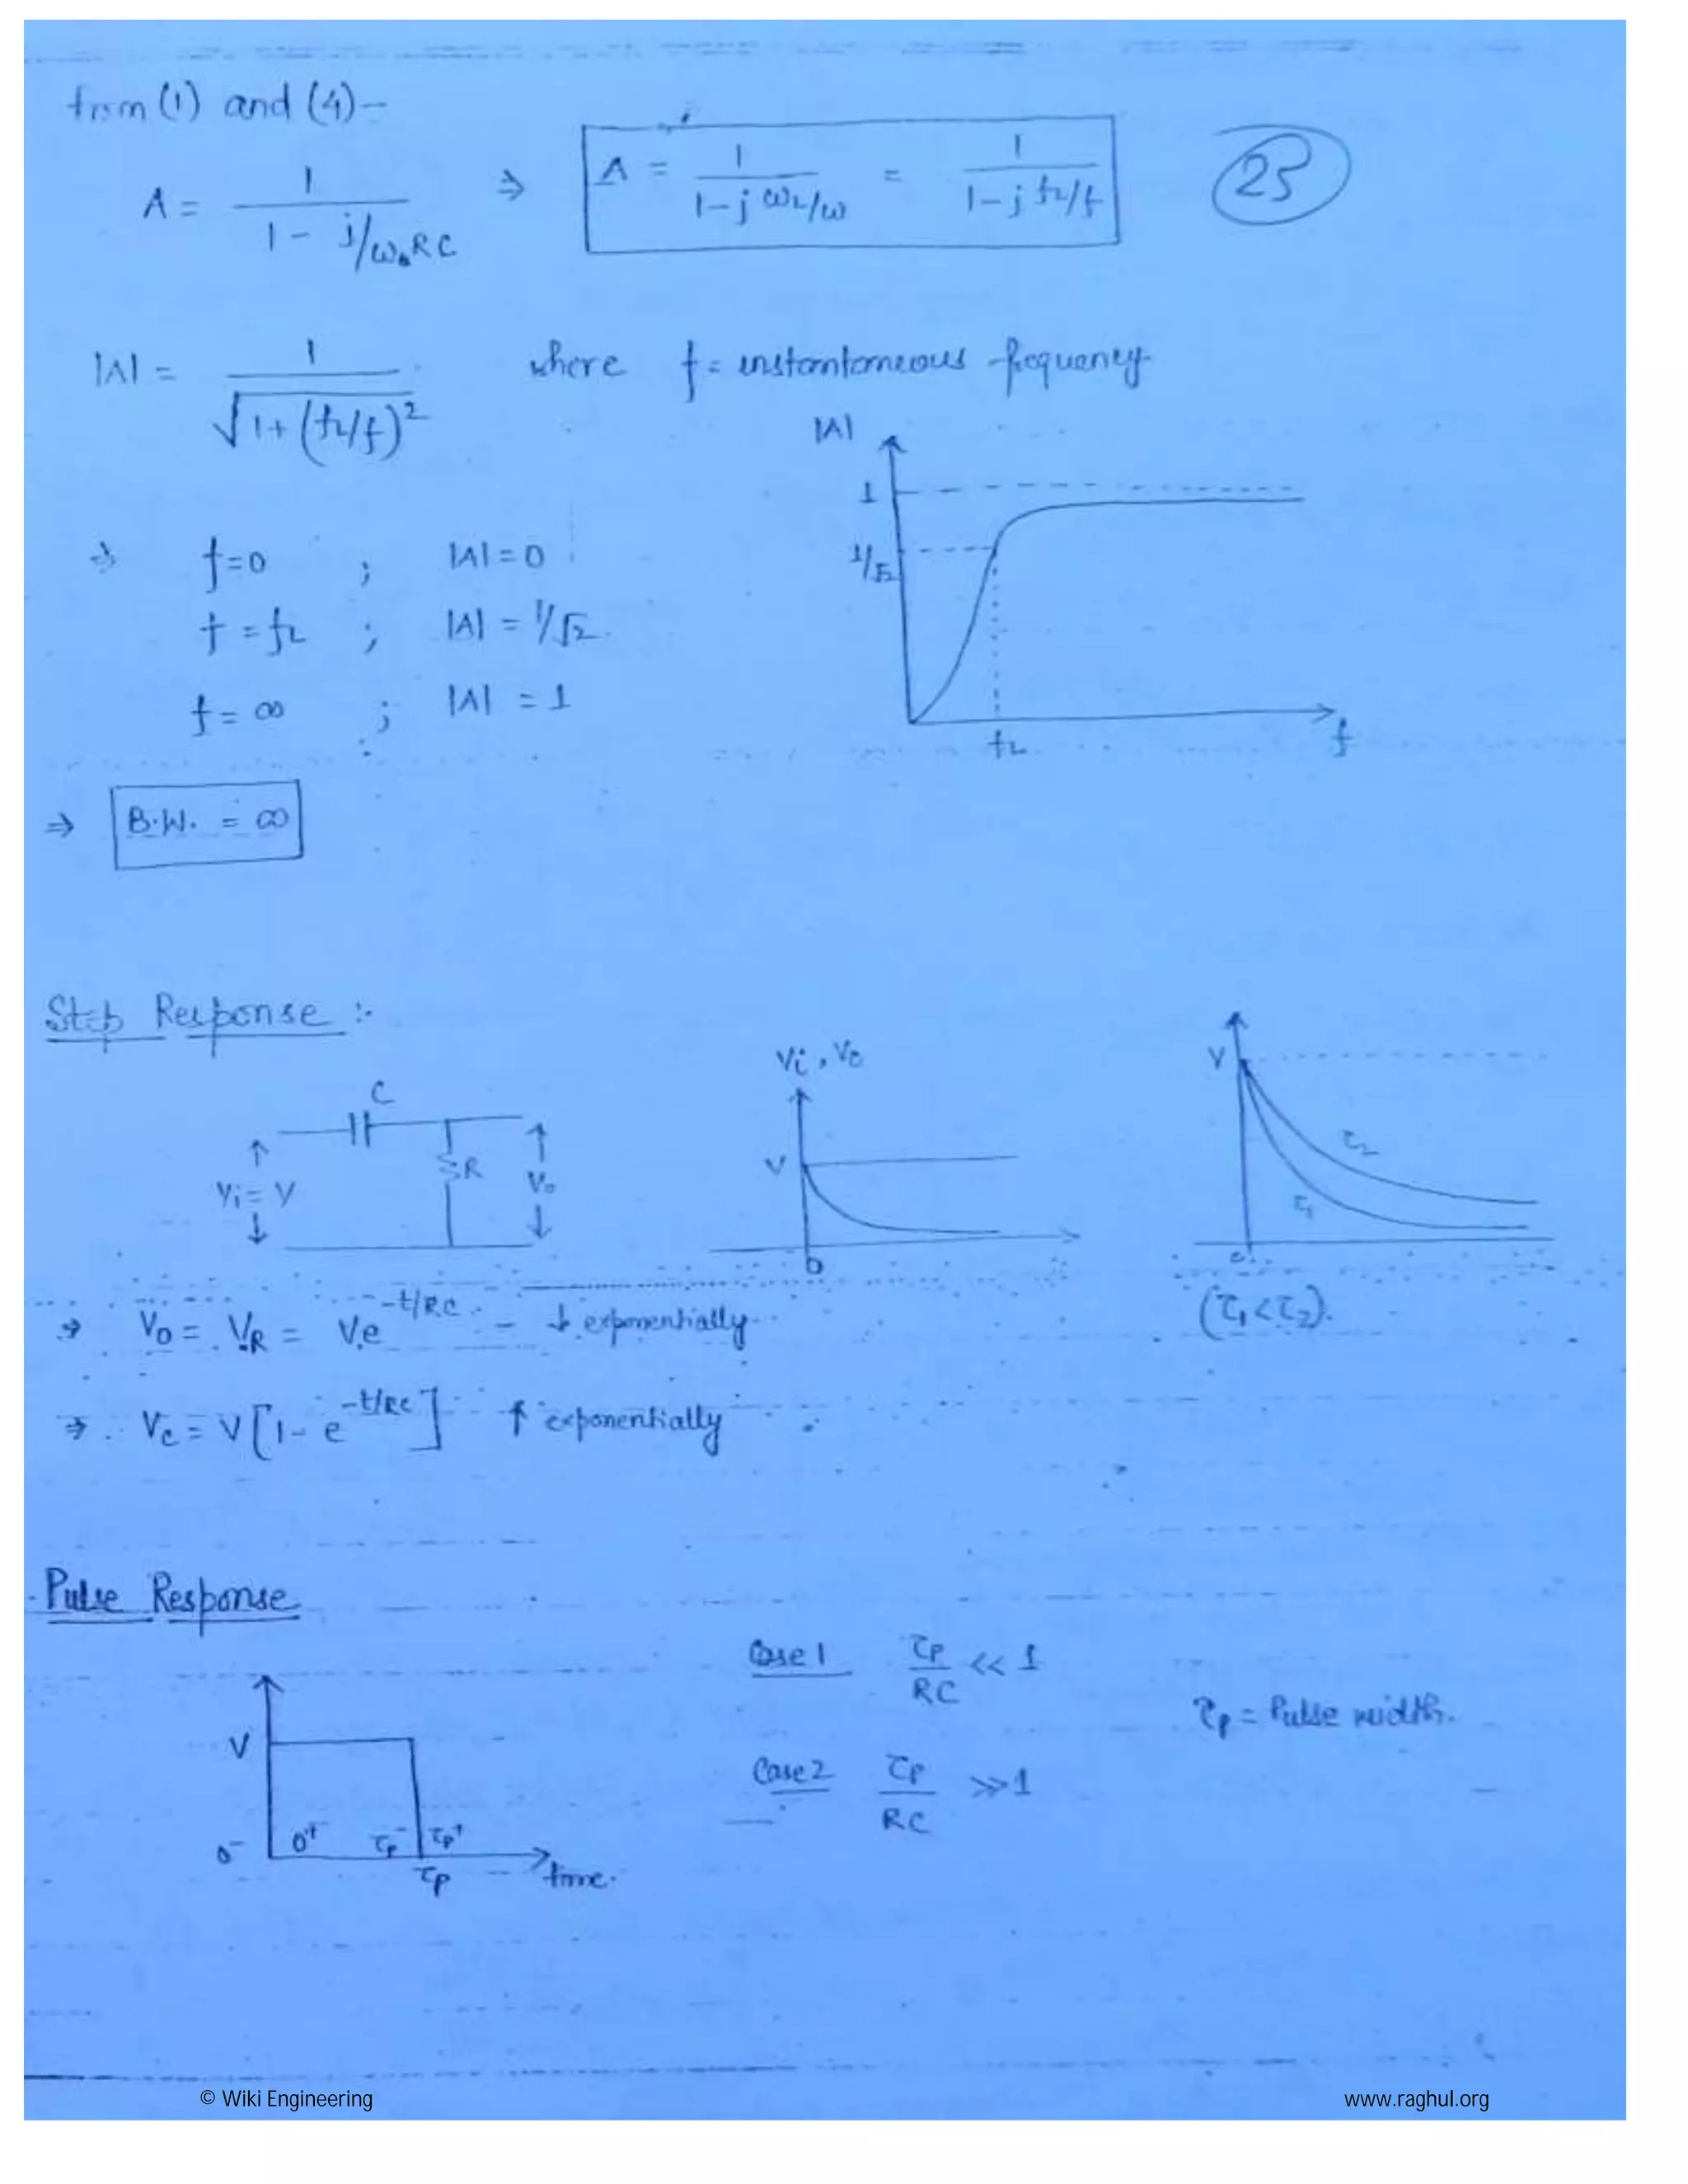 from (1) and (4) –
A = 1 / (1 - j/ωRC) ⇒ A = 1 / (1 - j ωL/ω) = 1 / (1 - j fL/f) 25
|A| = 1 / √(1 + (fL/f)²) where f = instantaneous frequency.
|A|
1
1/√2
fL f
⇒ f = 0 ; |A| = 0
f = fL ; |A| = 1/√2
f = ∞ ; |A| = 1
⇒ B.W. = ∞
Step Response :-
C
R
Vi = V
Vo
Vi, Vo
V
0
V
τ2
τ1
0
(τ1 < τ2).
⇒ Vo = VR = V.e^(-t/RC) – ↓ exponentially
⇒ Vc = V[1 - e^(-t/RC)] ↑ exponentially
Pulse Response
V
0⁻ 0⁺ τp⁻ τp⁺
τp time.
Case 1 τp/RC << 1
τp = Pulse width.
Case 2 τp/RC >> 1
© Wiki Engineering www.raghul.org